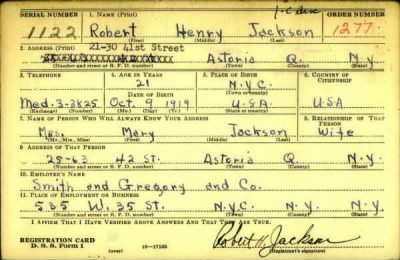 1-C disc
SERIAL NUMBER 1. NAME (Print) ORDER NUMBER
1122 Robert Henry Jackson 1277
(First) (Middle) (Last)
21-30 41st Street
2. ADDRESS (Print)
Astoria Q. N.Y.
(Number and street or R. F. D. number) (Town) (County) (State)
3. TELEPHONE 4. AGE IN YEARS 5. PLACE OF BIRTH 6. COUNTRY OF CITIZENSHIP
21 N.Y.C.
DATE OF BIRTH (Town or county)
Med. 3-3825 Oct. 9 1919 U.S.A USA
(Exchange) (No.) (Mo.) (Day) (Yr.) (State or country)
7. NAME OF PERSON WHO WILL ALWAYS KNOW YOUR ADDRESS 8. RELATIONSHIP OF THAT PERSON
Mrs. Mary Jackson Wife
(Mr., Mrs., Miss) (First) (Middle) (Last)
9. ADDRESS OF THAT PERSON
25-63 42 St. Astoria Q. N.Y.
(Number and street or R. F. D. number) (Town) (County) (State)
10. EMPLOYER'S NAME
Smith and Gregory and Co.
11. PLACE OF EMPLOYMENT OR BUSINESS
535 W. 35 St. N.Y.C. N.Y. N.Y.
(Number and street or R. F. D. number) (Town) (County) (State)
I AFFIRM THAT I HAVE VERIFIED ABOVE ANSWERS AND THAT THEY ARE TRUE.
REGISTRATION CARD
D. S. S. FORM 1 (over) 16—17105 Robert H. Jackson
(Registrant's signature)